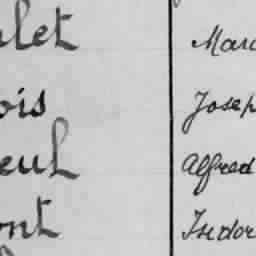 let Marc
ois Josep
eul Alfred
ont Isidor